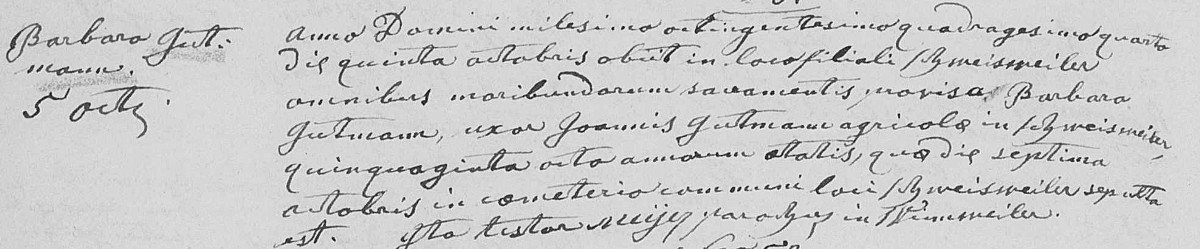 Barbara Gut-
mann.
5 octb.
Anno Domini milesimo octingentesimo quadragesimo quarto
die quinta octobris obiit in loco filiali Schweisweiler
omnibus moribundorum sacramentis provisa Barbara
Gutmann, uxor Joannis Gutmann agricolæ in Schweisweiler,
quinquaginta octo annorum ætatis, quæ die septima
octobris in cœmeterio communi loci Schweisweiler sepulta
est. Ita testor parochus in Winnweiler.